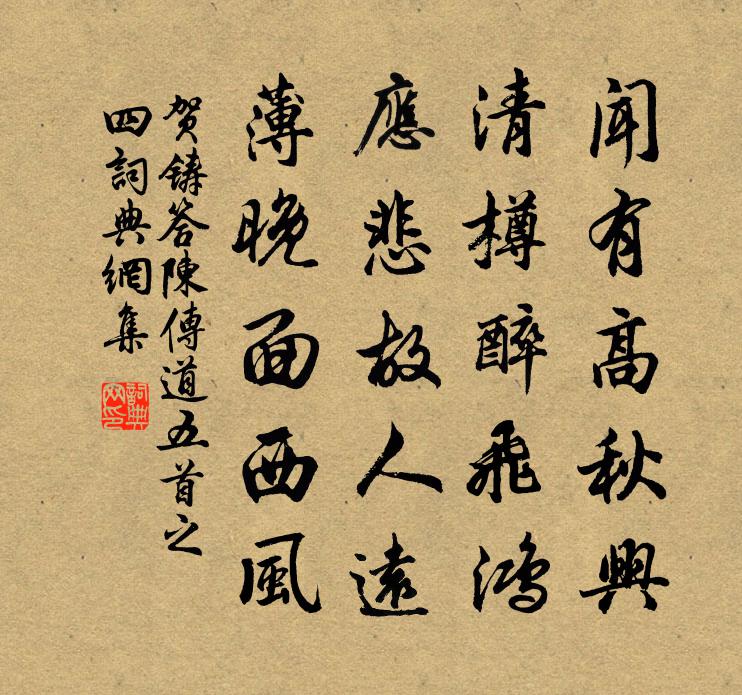 聞有高秋興
清樽醉飛鴻
應悲故人遠
薄晚面西風
賀鑄答陳傳道五首之
四詞典網集
詞典
网印